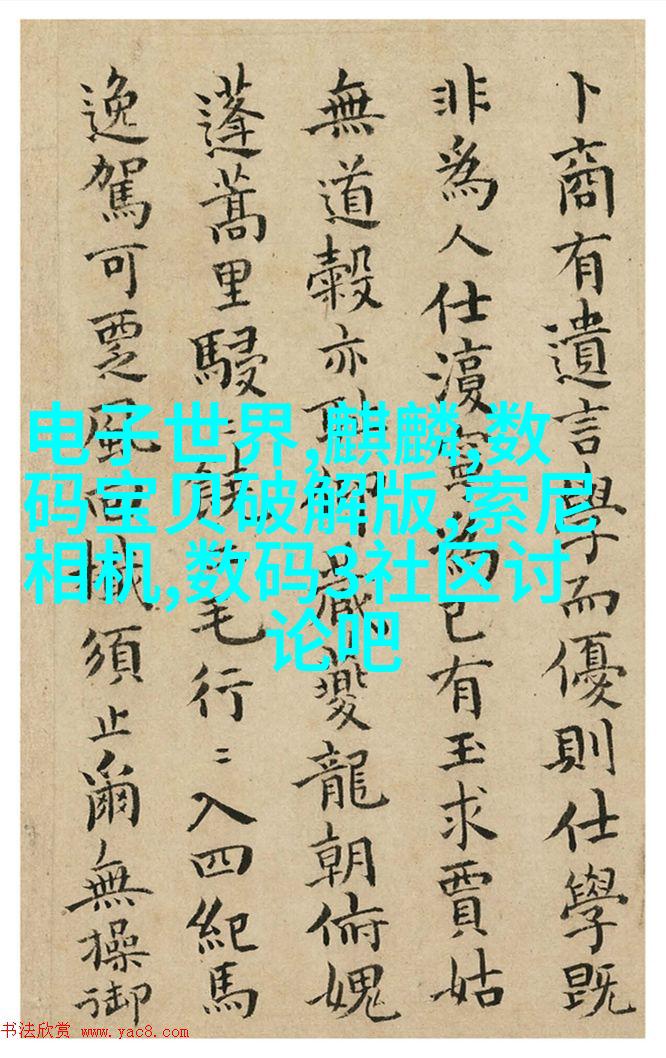 卜商有遺言學而優則仕學既
非為人仕為己有玉求賈姑
無道穀亦夔龍朝俯媿
蓬蒿里駸〻毛行〻入四紀馬
逸駕可覂風須止爾無操御
电子世界,麒麟,数
码宝贝破解版,索尼
相机,数码3社区讨
论吧
书法欣赏 www.yac8.com